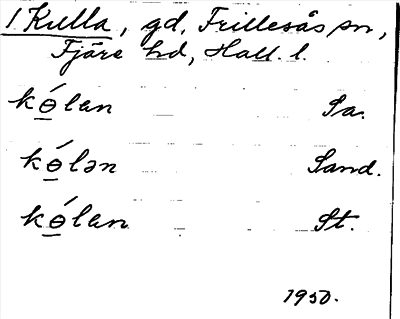 1 Kulla, gd, Frillesås sn,
Fjäre hd, Hall. l.
kɵ́lan Sa.
kɵ́lən Sand.
kɵ́lan St.
1950.